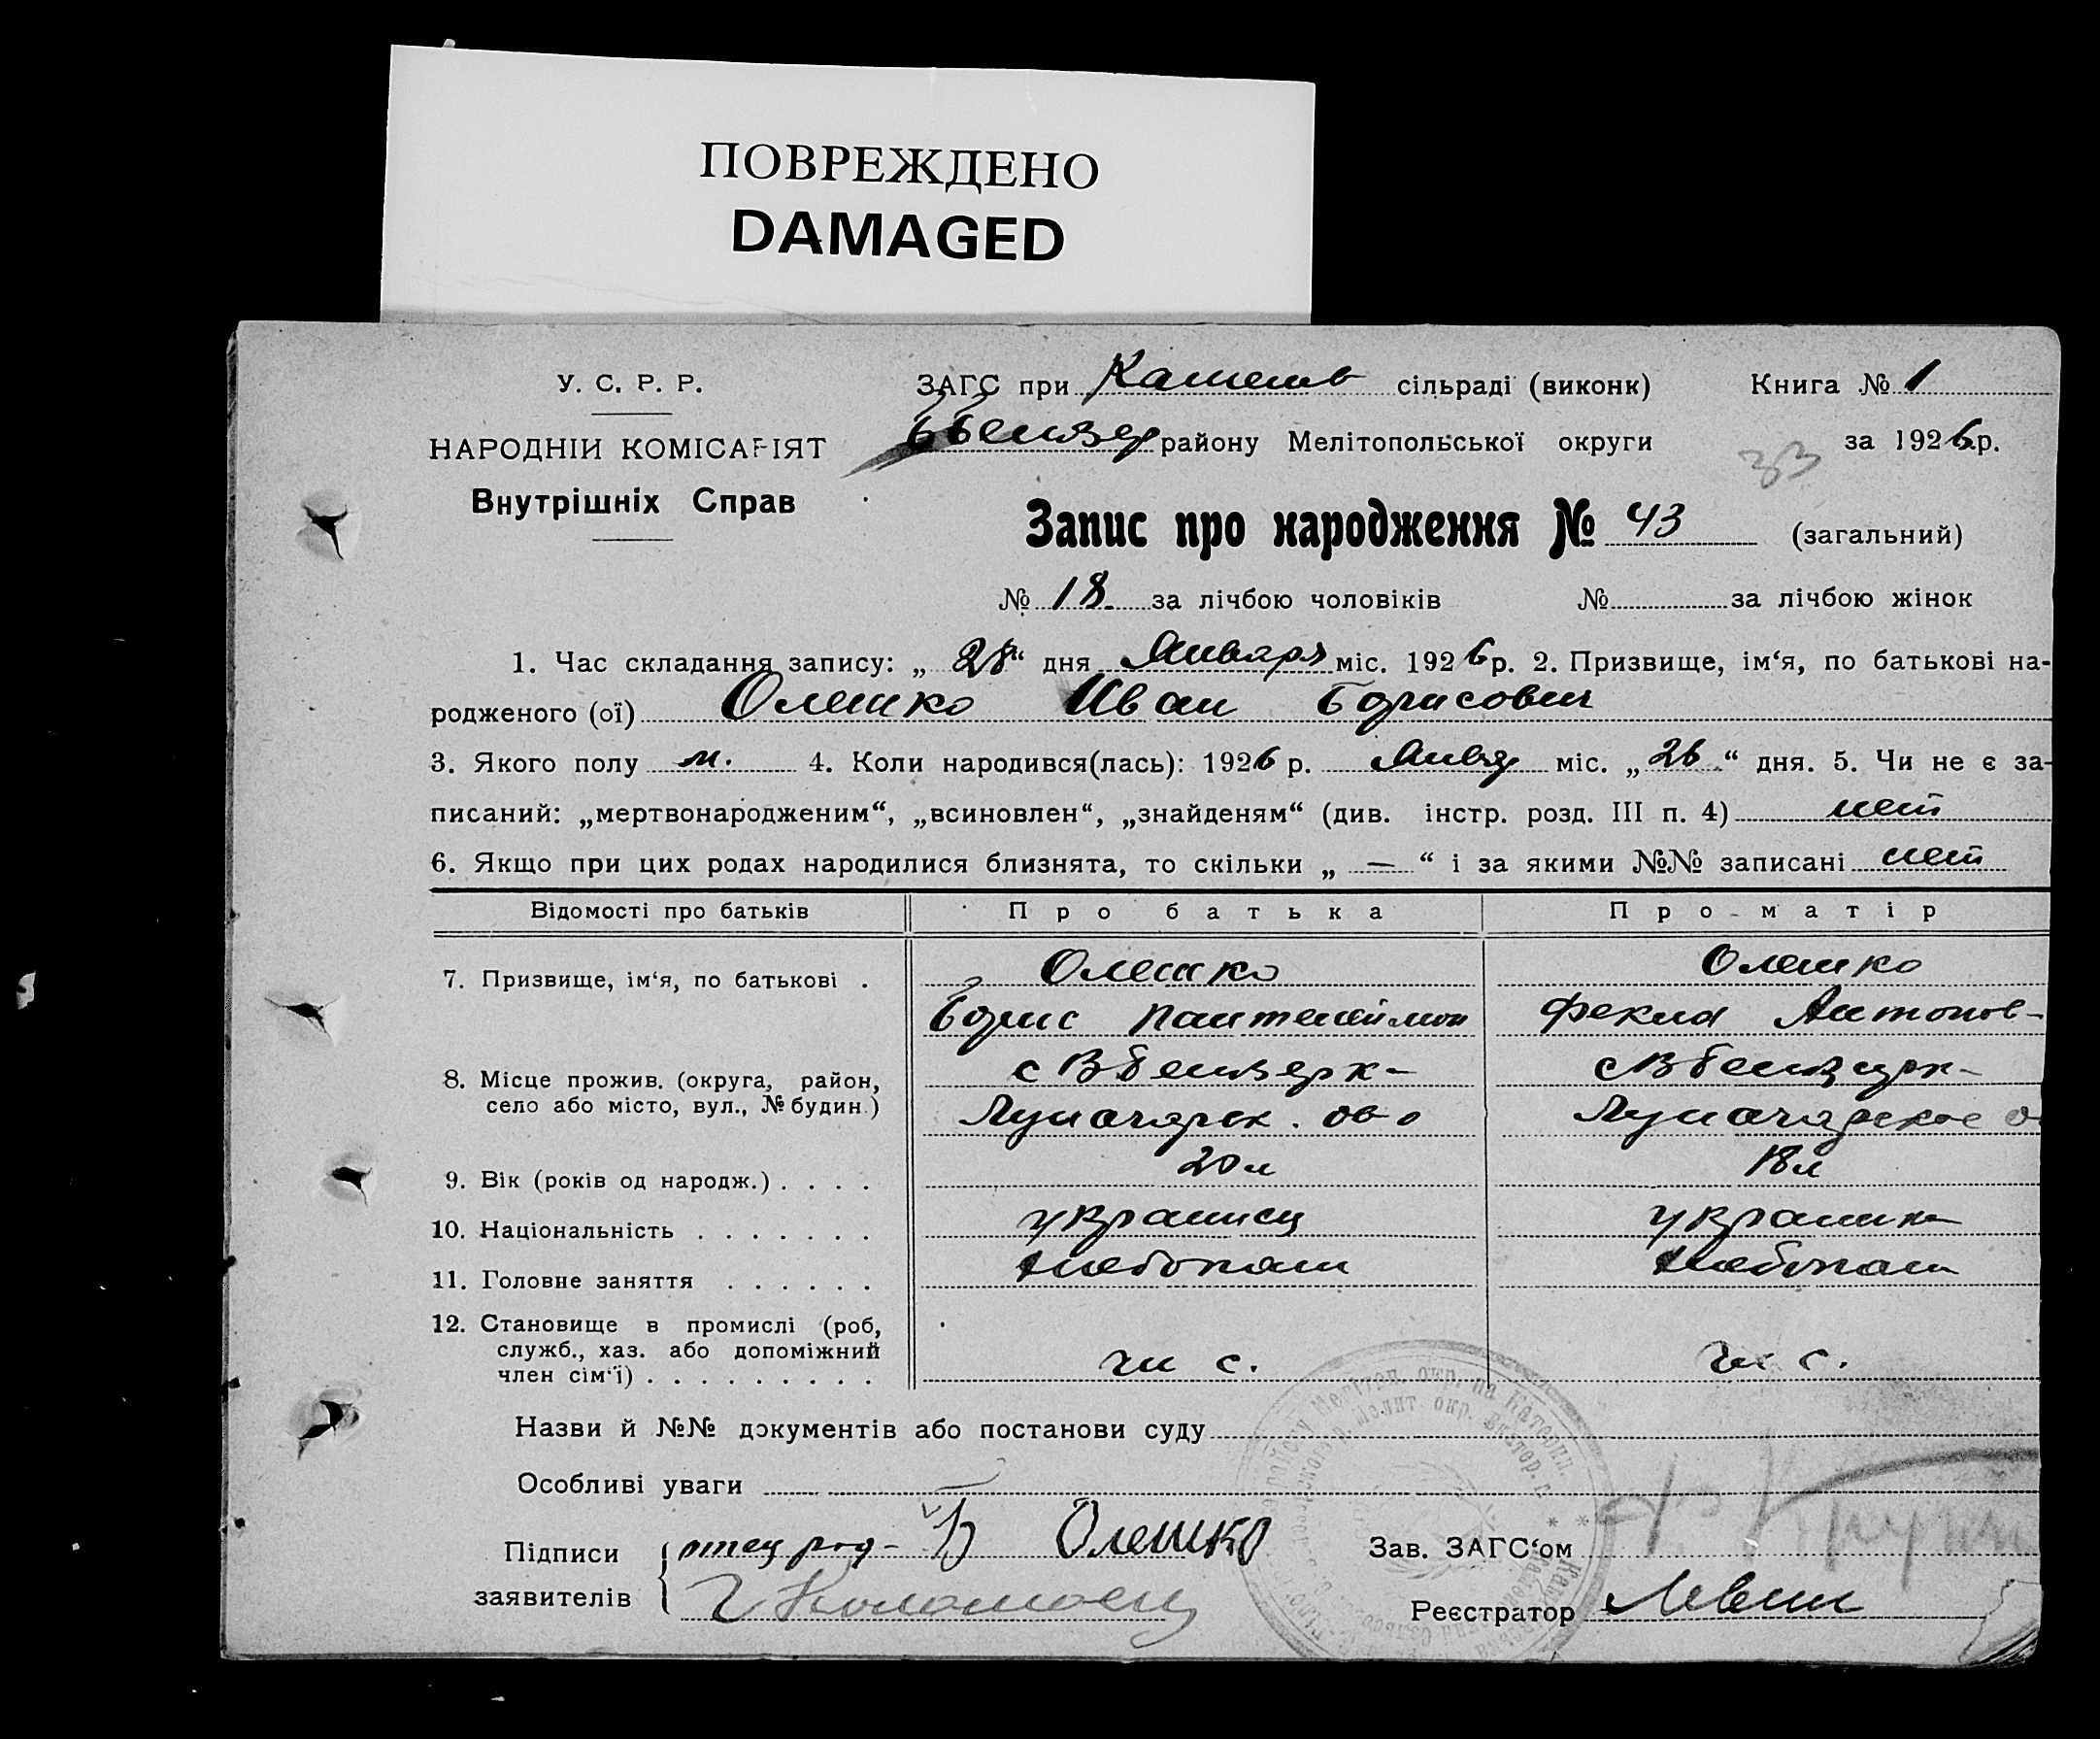 ПОВРЕЖДЕНО
DAMAGED
У. С. Р. Р.
ЗАГС при сільраді (виконк) Книга № 1
НАРОДНІИ КОМІСАРІЯТ
району Мелітопольської округи за 1926 р.
33
Внутрішніх Справ
Запис про народження № 43 (загальний)
№ 18 за лічбою чоловіків № за лічбою жінок
1. Час складання запису: „ 28 “ дня Января міс. 1926 р. 2. Призвище, ім‘я, по батькові на-
родженого (ої) Олешко Иван Борисович
3. Якого полу м. 4. Коли народився(лась): 1926 р. Январ міс. „ 26 “ дня. 5. Чи не є за-
писаний: „мертвонародженим“, „всиновлен“, „знайденям“ (див. інстр. розд. III п. 4) нет
6. Якщо при цих родах народилися близнята, то скільки „ — “ і за якими №№ записані нет
Відомості про батьків Про батька Про матір
7. Призвище, ім‘я, по батькові . Олешко Олешко
Борис Пантелеймон Фекла Антонов-
8. Місце прожив. (округа, район,
село або місто, вул., № будин.)
Луначарск. Луначарское
9. Вік (років од народж.) . . . . 20 л 18 л
10. Національність . . . . . . . украинец украинка
11. Головне заняття . . . . . . хлебопаш хлебопаш
12. Становище в промислі (роб,
служб., хаз. або допоміжний
член сім‘ї) . . . . . . . . . чл с. чл с.
Назви й №№ документів або постанови суду
Особливі уваги
Підписи отец род- Б Олешко Зав. ЗАГС‘ом
заявителів Г Коломоец Реєстратор Левин